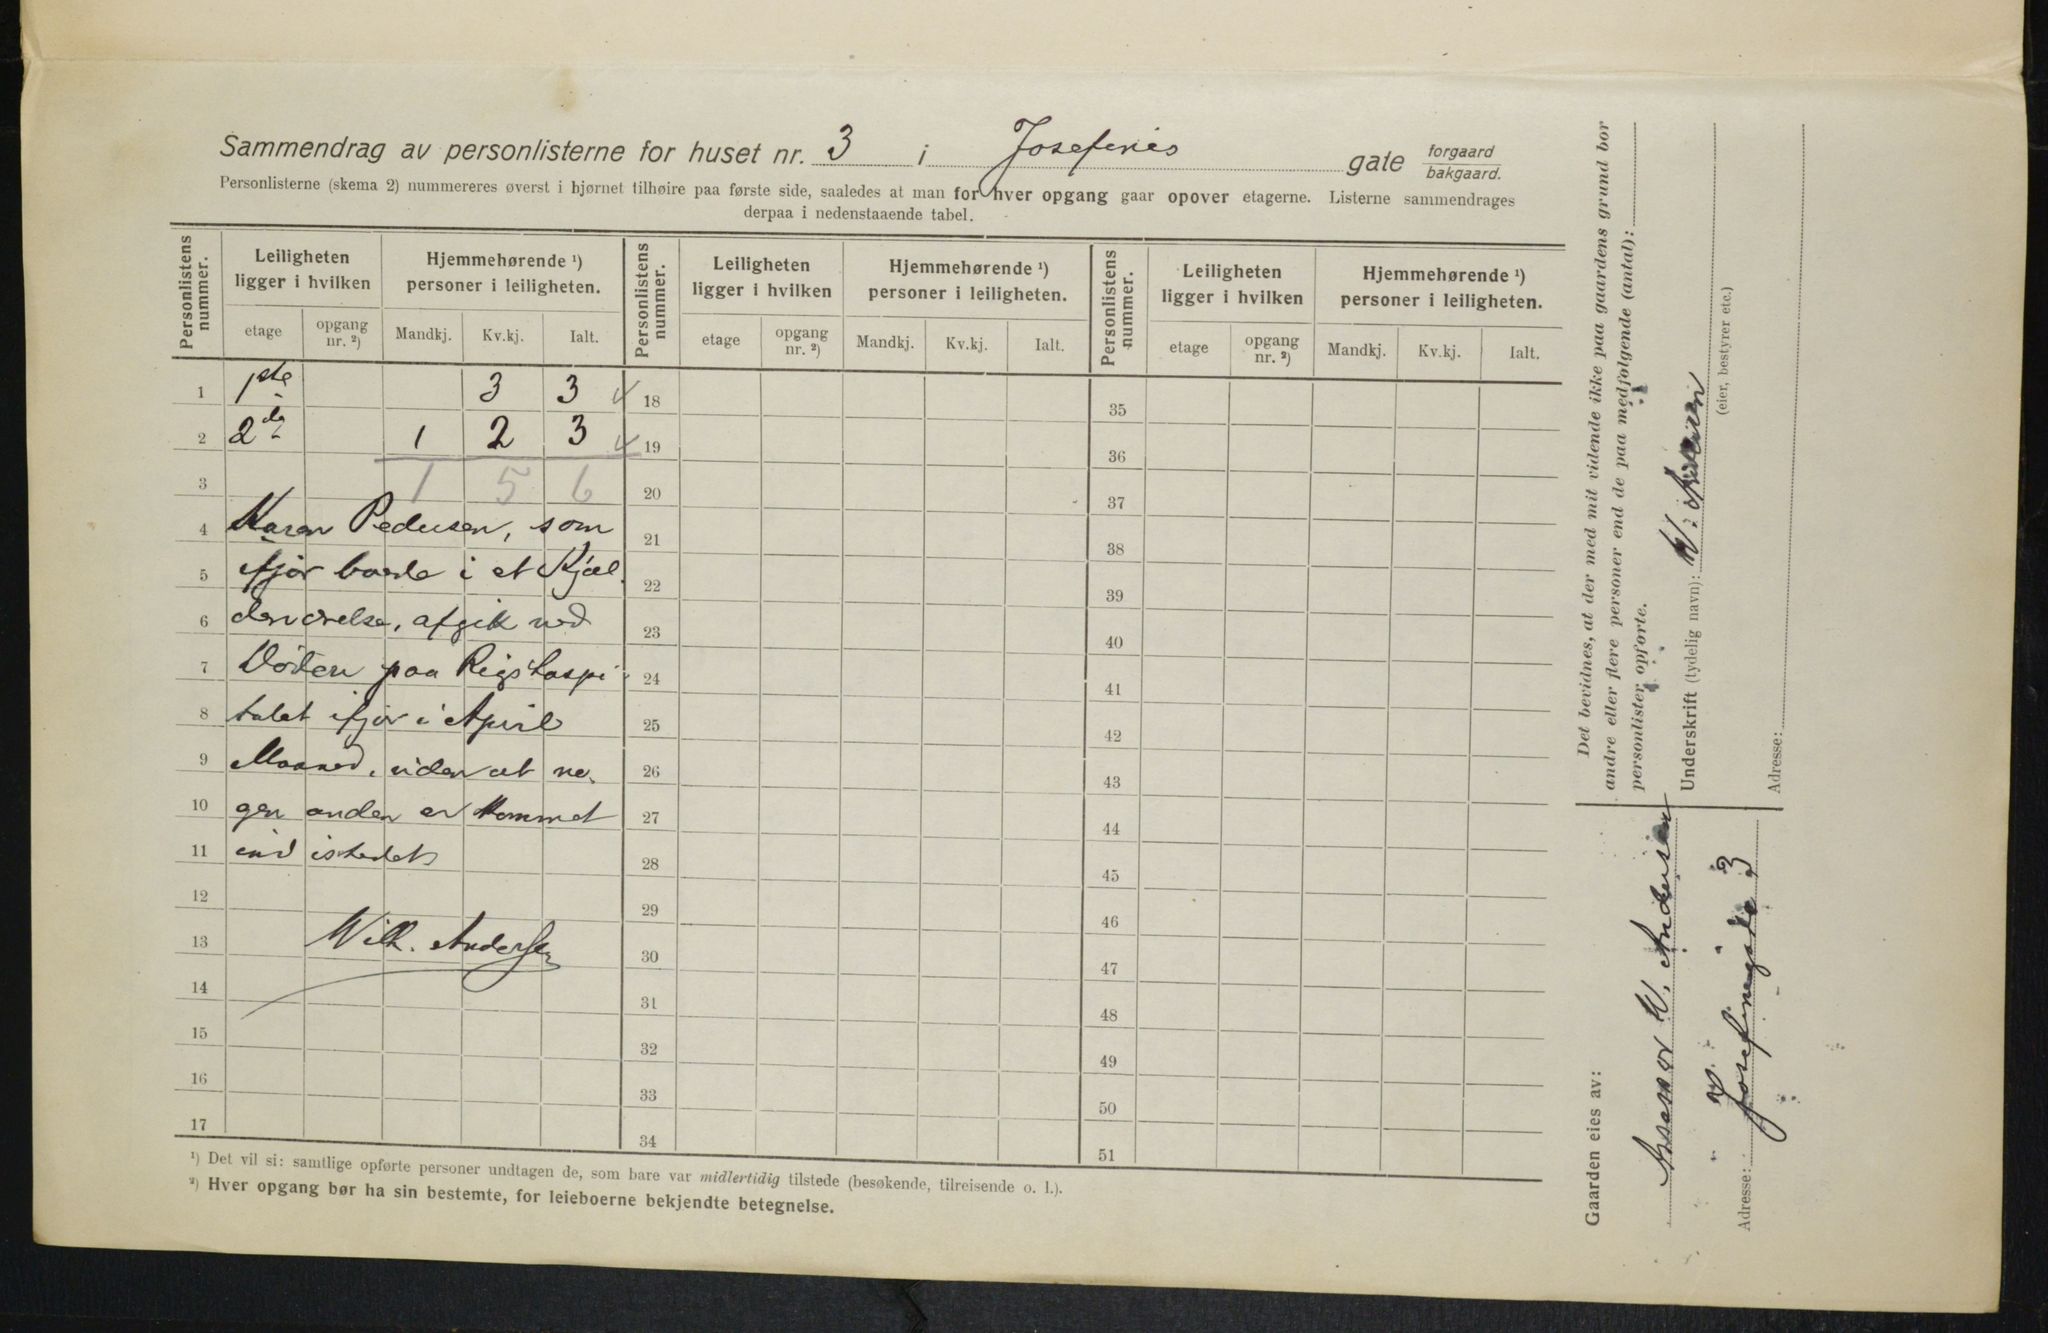 Sammendrag av personlisterne for huset nr. 3 i Josefines gate forgaard bakgaard.
Personlisterne (skema 2) nummereres øverst i hjørnet tilhøire paa første side, saaledes at man for hver opgang gaar opover etagerne. Listerne sammendrages
derpaa i nedenstaaende tabel.
Personlistens nummer. Leiligheten ligger i hvilken Hjemmehørende ¹) personer i leiligheten. Personlistens nummer. Leiligheten ligger i hvilken Hjemmehørende ¹) personer i leiligheten. Personlistens nummer. Leiligheten ligger i hvilken Hjemmehørende ¹) personer i leiligheten.
etage opgang nr. ²) Mandkj. Kv.kj. Ialt. etage opgang nr. ²) Mandkj. Kv.kj. Ialt. etage opgang nr. ²) Mandkj. Kv.kj. Ialt.
1 1ste 3 3 18 35
2 2de 1 2 3 19 36
3 1 5 6 20 37
4 Karen Pedersen, som 21 38
5 ifjor boede i et Kjæl 22 39
6 derværelse, afgik ved 23 40
7 Døden paa Rigshospi 24 41
8 talet ifjor i April 25 42
9 Maaned, uden at no 26 43
10 gen anden er kommet 27 44
11 ind istedet 28 45
12 29 46
13 Wilh. Andersen 30 47
14 31 48
15 32 49
16 33 50
17 34 51
¹) Det vil si: samtlige opførte personer undtagen de, som bare var midlertidig tilstede (besøkende, tilreisende o. l.).
²) Hver opgang bør ha sin bestemte, for leieboerne bekjendte betegnelse.
Det bevidnes, at der med mit vidende ikke paa gaardens grund bor
andre eller flere personer end de paa medfølgende (antal):
personlister opførte.
Underskrift (tydelig navn): W. Andersen
(eier, bestyrer etc.)
Adresse:
Gaarden eies av:
Assessor W. Andersen
Adresse: Josefinegade 3